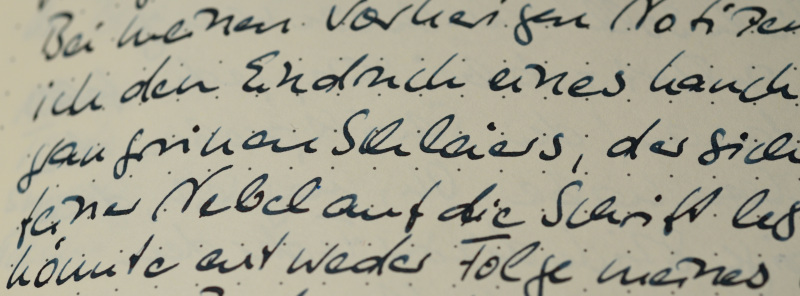 Bei meinen vorherigen Notizen
ich den Eindruck eines hauch
grünen Schleiers, der sich
feiner Nebel auf die Schrift leg
könnte entweder Folge meines